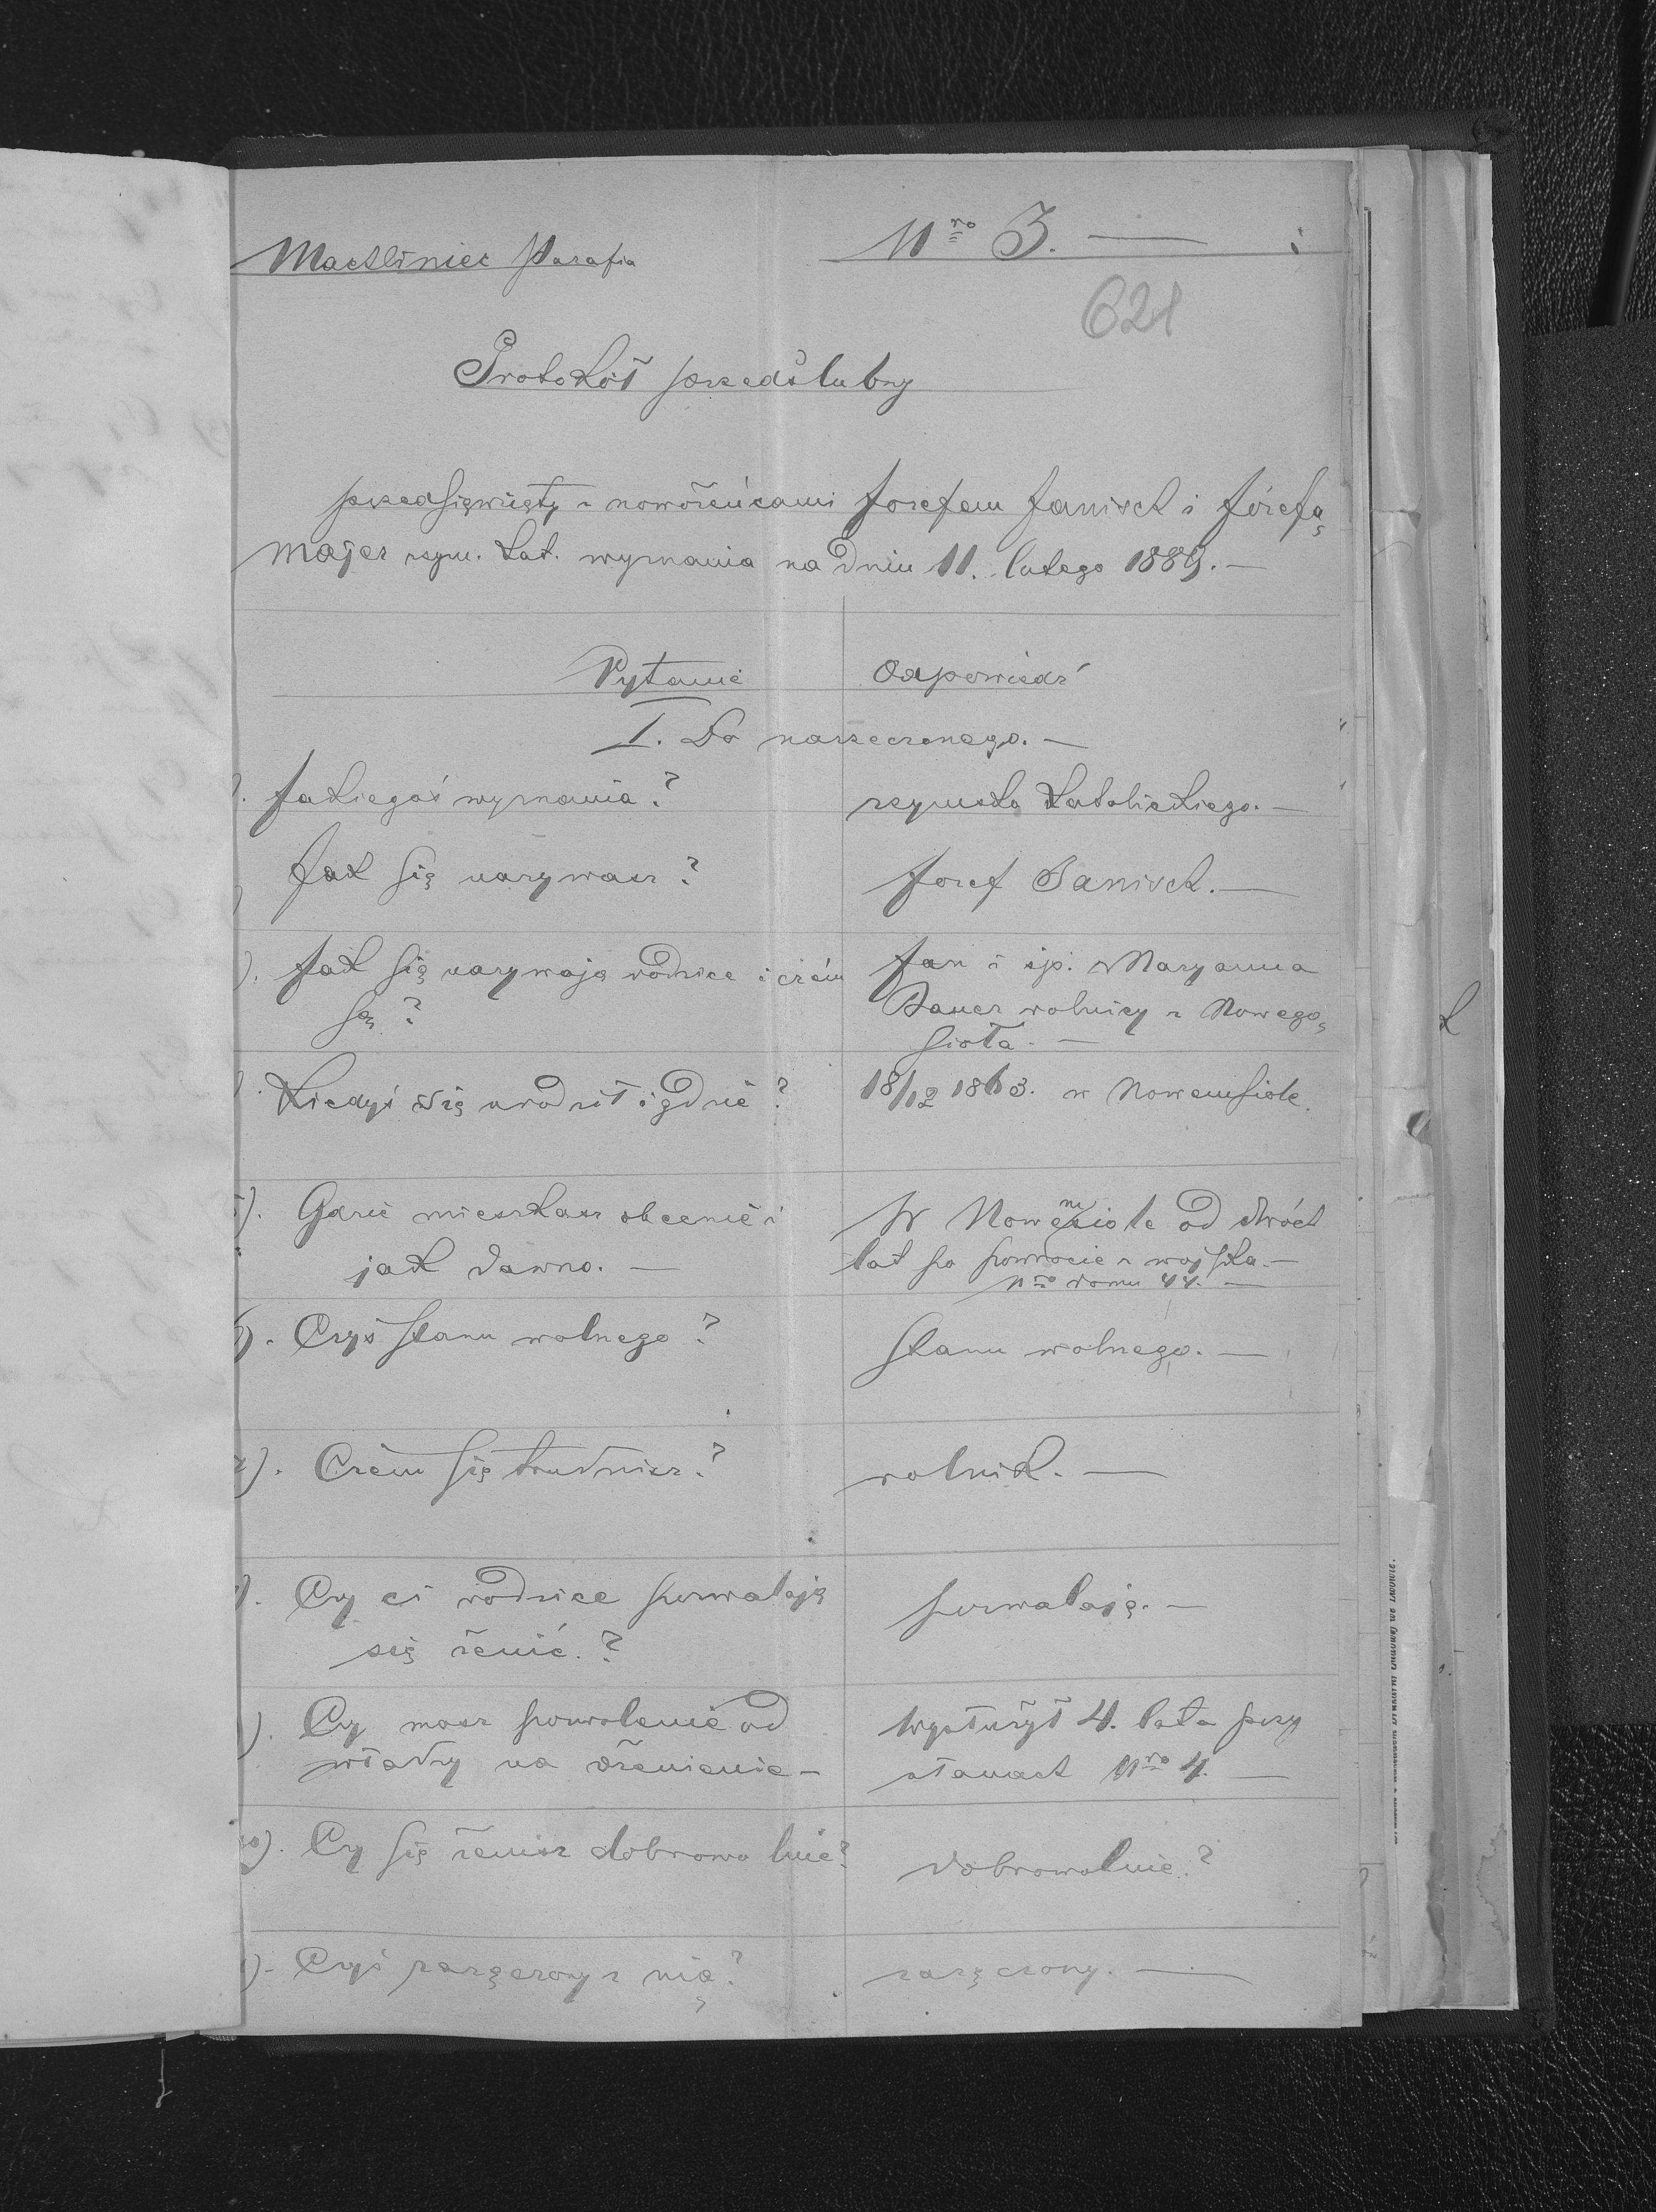 Machliniec Parafia
Nro 3. —
621
Protokół przedślubny
przedsięwzięty z nowożeńcami Jozefem Janisch i Józefą
Majer rzym. kat. wyznania na dniu 11. lutego 1889. —
Pytanie
Odpowiedź
I. Do narzeczonego. —
Jakiegoś wyznania?
rzymsko katolickiego. —
Jak się nazywasz?
Jozef Janisch. —
Jak się nazywają rodzice i czém
są?
Jan i śp. Maryanna
Bauer rolnicy z Nowego
sioła. —
Kiedyś się urodził i gdzie?
18/12 1863. w Nowemsiole.
5). Gdzie mieszkasz obecnie i
jak dawno. —
W Nowemsiole od dwóch
lat po powrocie z wojska. —
Nro domu 44. —
6). Czyś stanu wolnego?
stanu wolnego. —
7). Czém się trudnisz?
rolnik. —
Czy ci rodzice pozwalają
się żenić.?
pozwalają. —
Czy masz pozwolenie od
władzy na ożenienie —
Wysłużył 4. lata przy
ułanach Nro 4. —
10). Czy się żenisz dobrowolnie?
dobrowolnie.?
). Czyś zaręczony z nią?
zaręczony. —